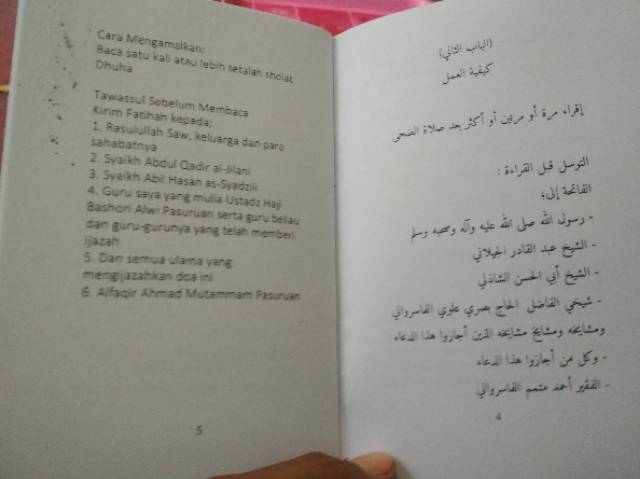 (الباب الثاني)
كيفية العمل
إقراء مرة أو مرتين أو أكثر بعد صلاة الضحى
التوسل قبل القراءة :
الفاتحة إلى؛
- رسول الله صلى الله عليه وآله وصحبه وسلم
- الشيخ عبد القادر الجيلاني
- الشيخ أبي الحسن الشاذلي
- شيخي الفاضل الحاج بصري علوي الفاسرواني
ومشايخه ومشايخ مشايخه الذين أجازوا هذا الدعاء
- وكل من أجازوا هذا الدعاء
- الفقير أحمد متمم الفاسرواني
4
Cara Mengamalkan:
Baca satu kali atau lebih setalah sholat
Dhuha
Tawassul Sebelum Membaca
Kirim Fatihah kepada;
1. Rasulullah Saw, keluarga dan para
sahabatnya
2. Syaikh Abdul Qadir al-Jilani
3. Syaikh Abil Hasan as-Syadzili
4. Guru saya yang mulia Ustadz Haji
Bashori Alwi Pasuruan serta guru beliau
dan guru-gurunya yang telah memberi
ijazah
5. Dan semua ulama yang
mengijazahkan doa ini
6. Alfaqir Ahmad Mutammam Pasuruan
5